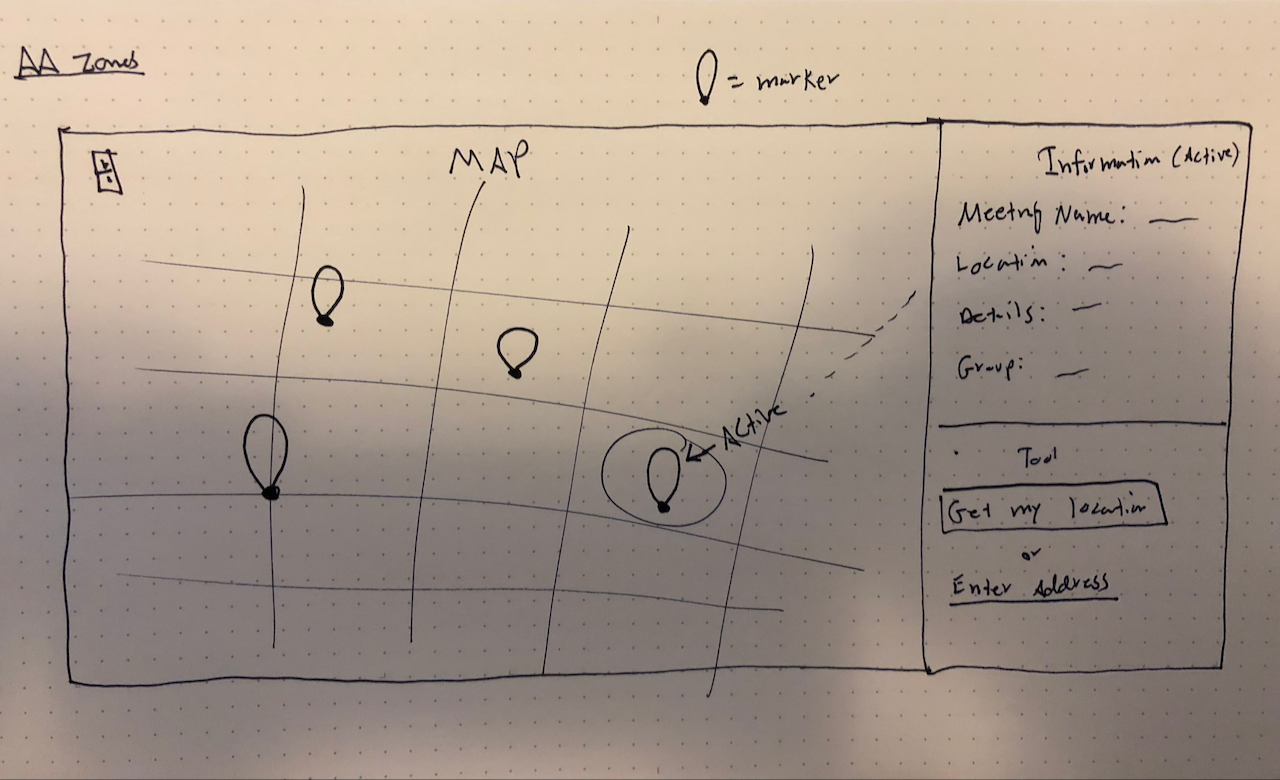 AA Zones
= marker
MAP
Active
Information (Active)
Meeting Name:
Location:
Details:
Group:
Tool
Get my location
or
Enter Address